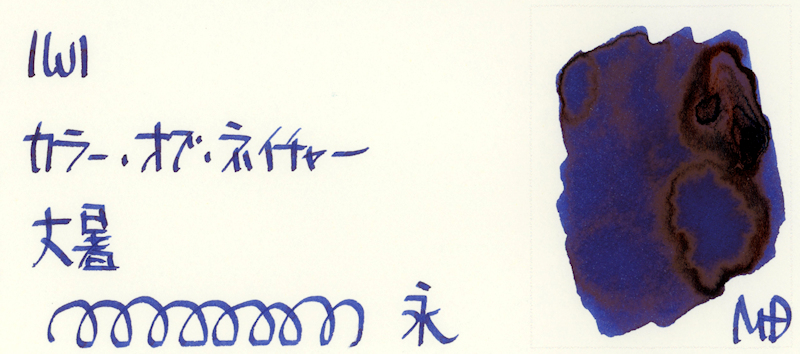 IWI
カラー・オブ・ネイチャー
大暑
永
MD